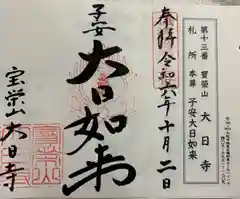 第十三番 寶栄山 大日寺
札所本尊 子安大日如来
奉拝 令和六年十月二日
子安
大日如来
宝栄山
大日寺